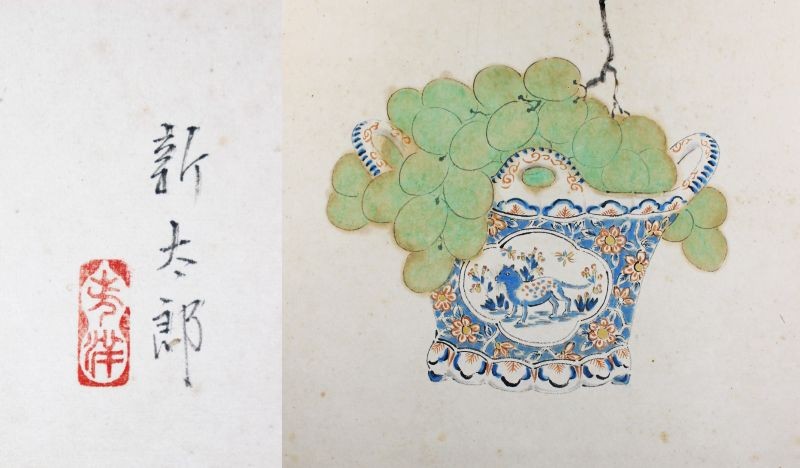 新太郎